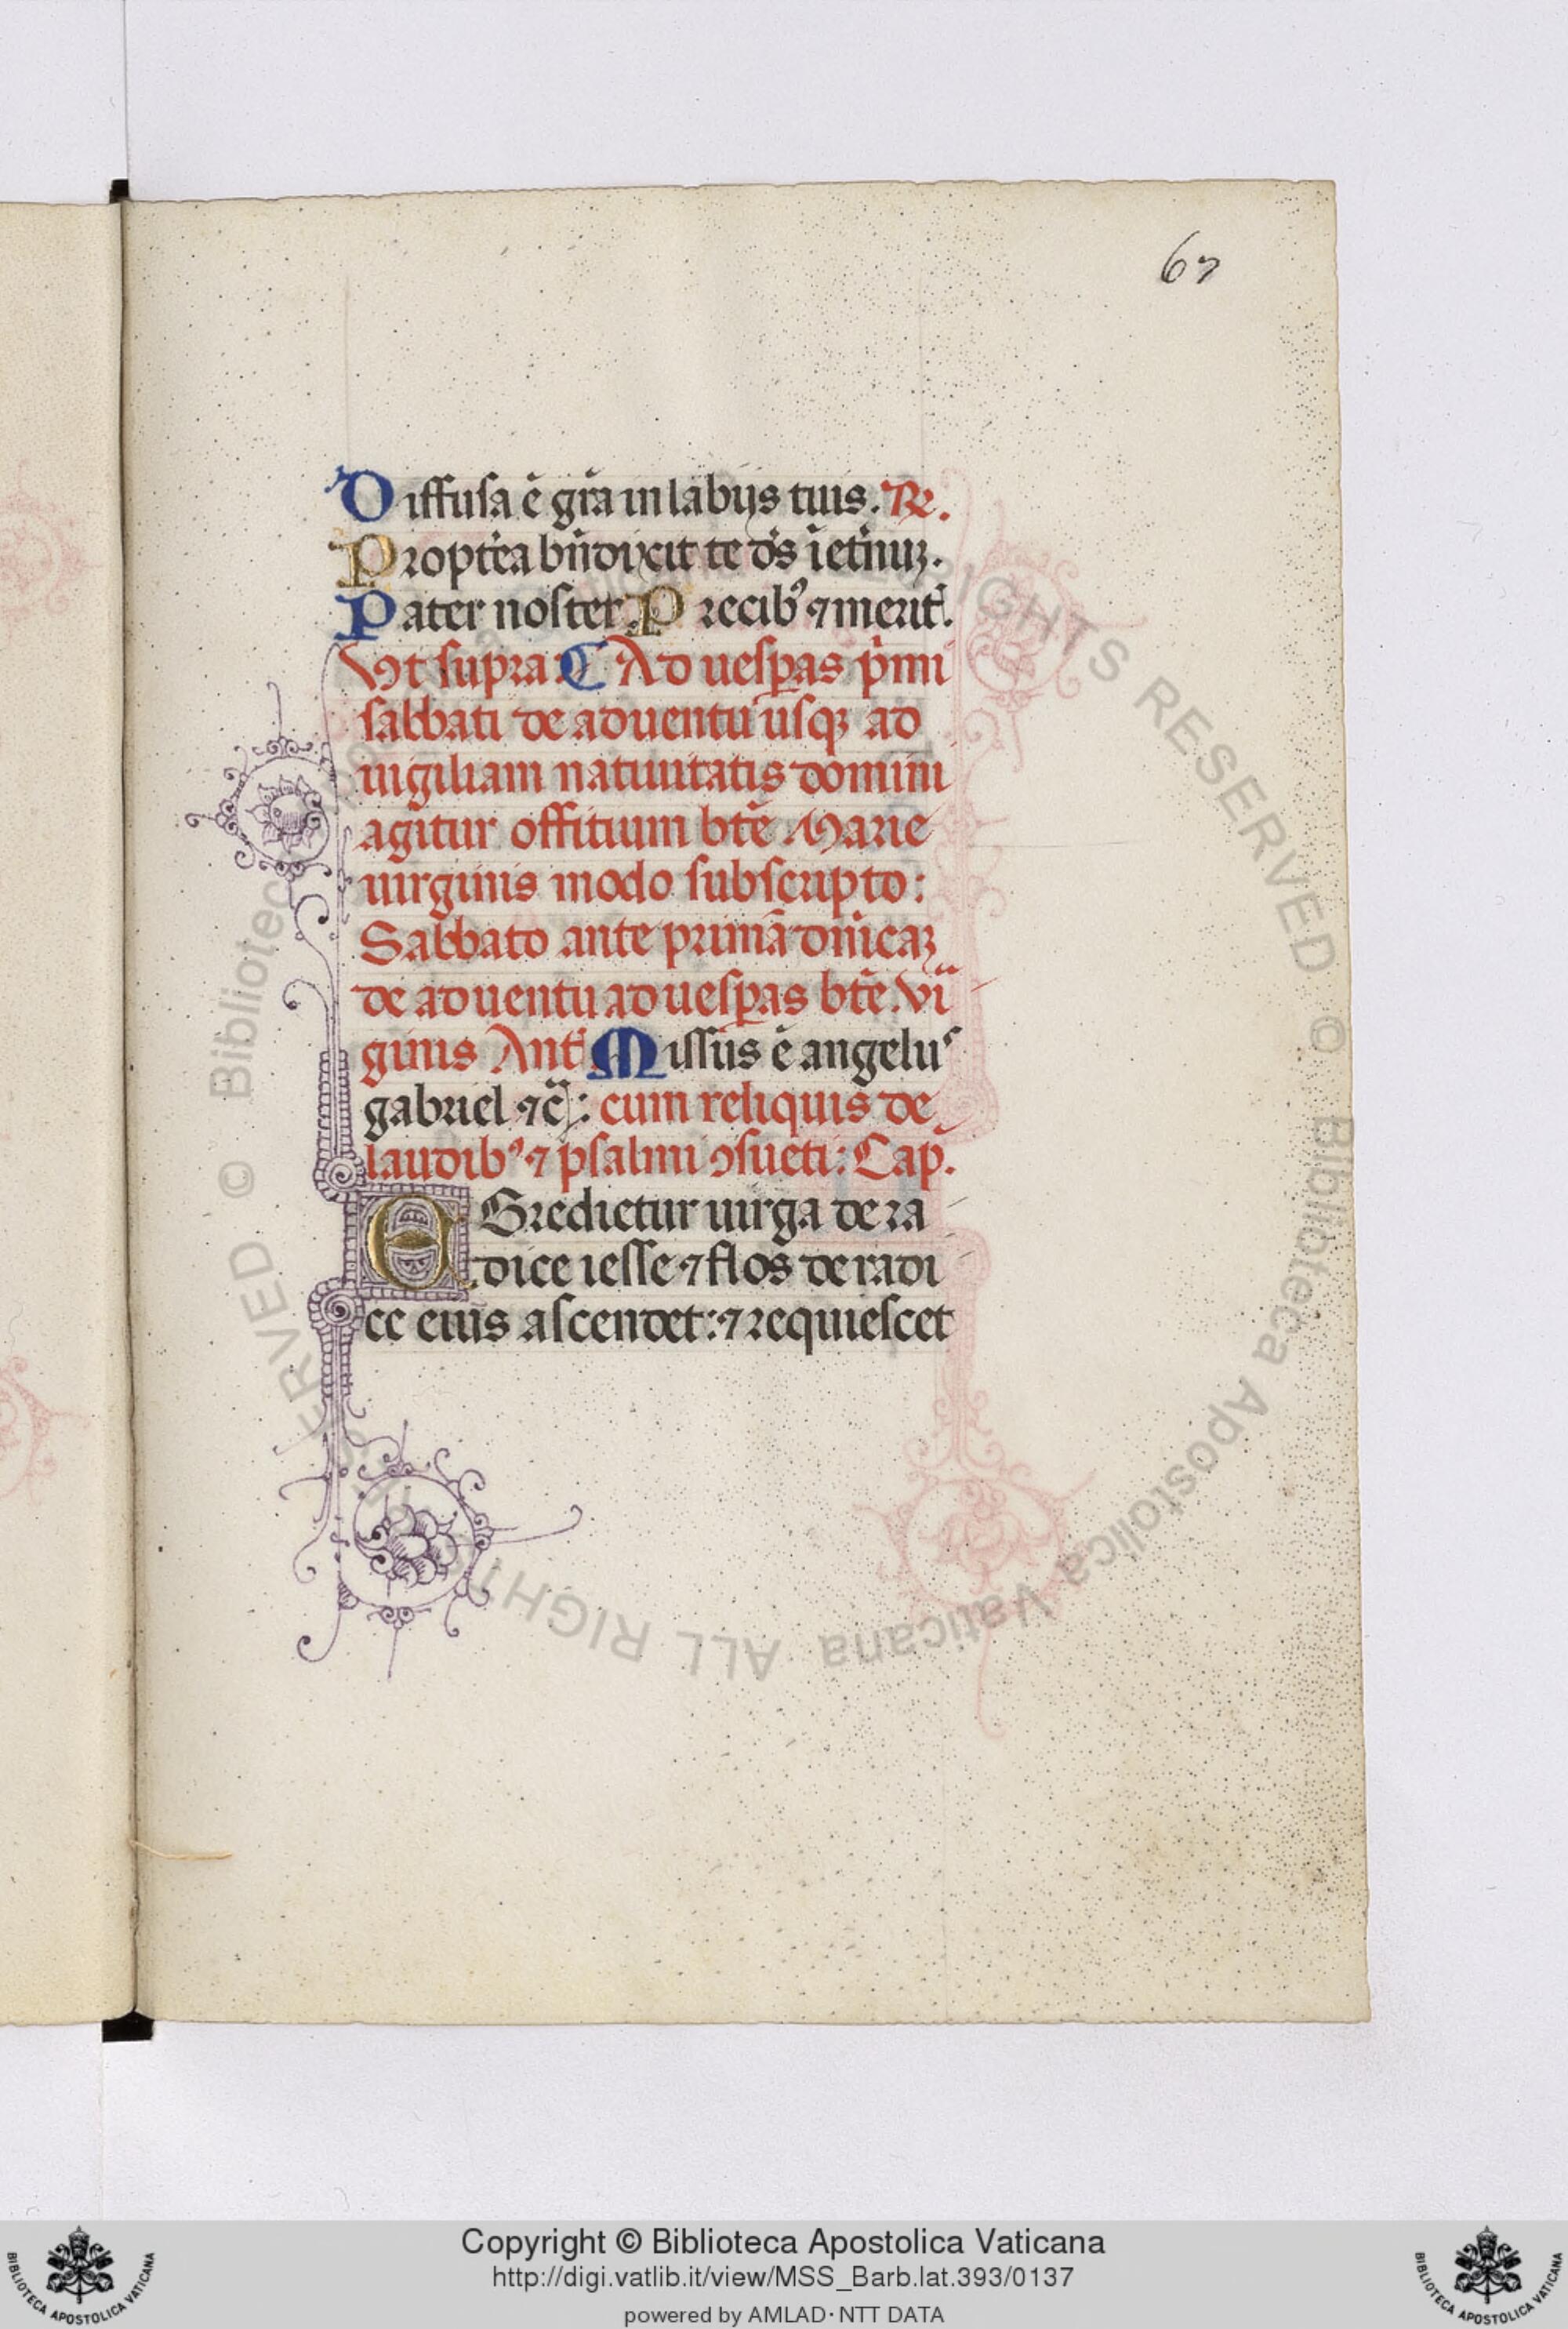 67
Diffusa ē gr̄a in labijs tuis. R̄.
Propt̄ea bn̄dixit te ds̄ ī et̄nuꝫ.
Pater noster. P recibꝰ ⁊ merit̄.
Vt supra. C Ad uesꝑas p̄mi
sabbati de aduentu usqꝫ ad
uigiliam natiuitatis domini
agitur offitium bt̄e Marie
uirginis modo subscripto:
Sabbato ante primā dn̄icaꝫ
de aduentu ad uesꝑas bt̄e. vi
ginis Ant̄ Missus ē angelus
gabriel ⁊c̄: cum reliquis de
laudibꝰ ⁊ psalmi ꝯsueti: Cap.
EGredietur uirga de ra
dice iesse ⁊ flos de radi
ce eius ascendet: ⁊ requiescet
© Biblioteca Apostolica Vaticana ALL RIGHTS RESERVED
Copyright © Biblioteca Apostolica Vaticana
http://digi.vatlib.it/view/MSS_Barb.lat.393/0137
powered by AMLAD · NTT DATA
BIBLIOTECA APOSTOLICA VATICANA
BIBLIOTECA APOSTOLICA VATICANA